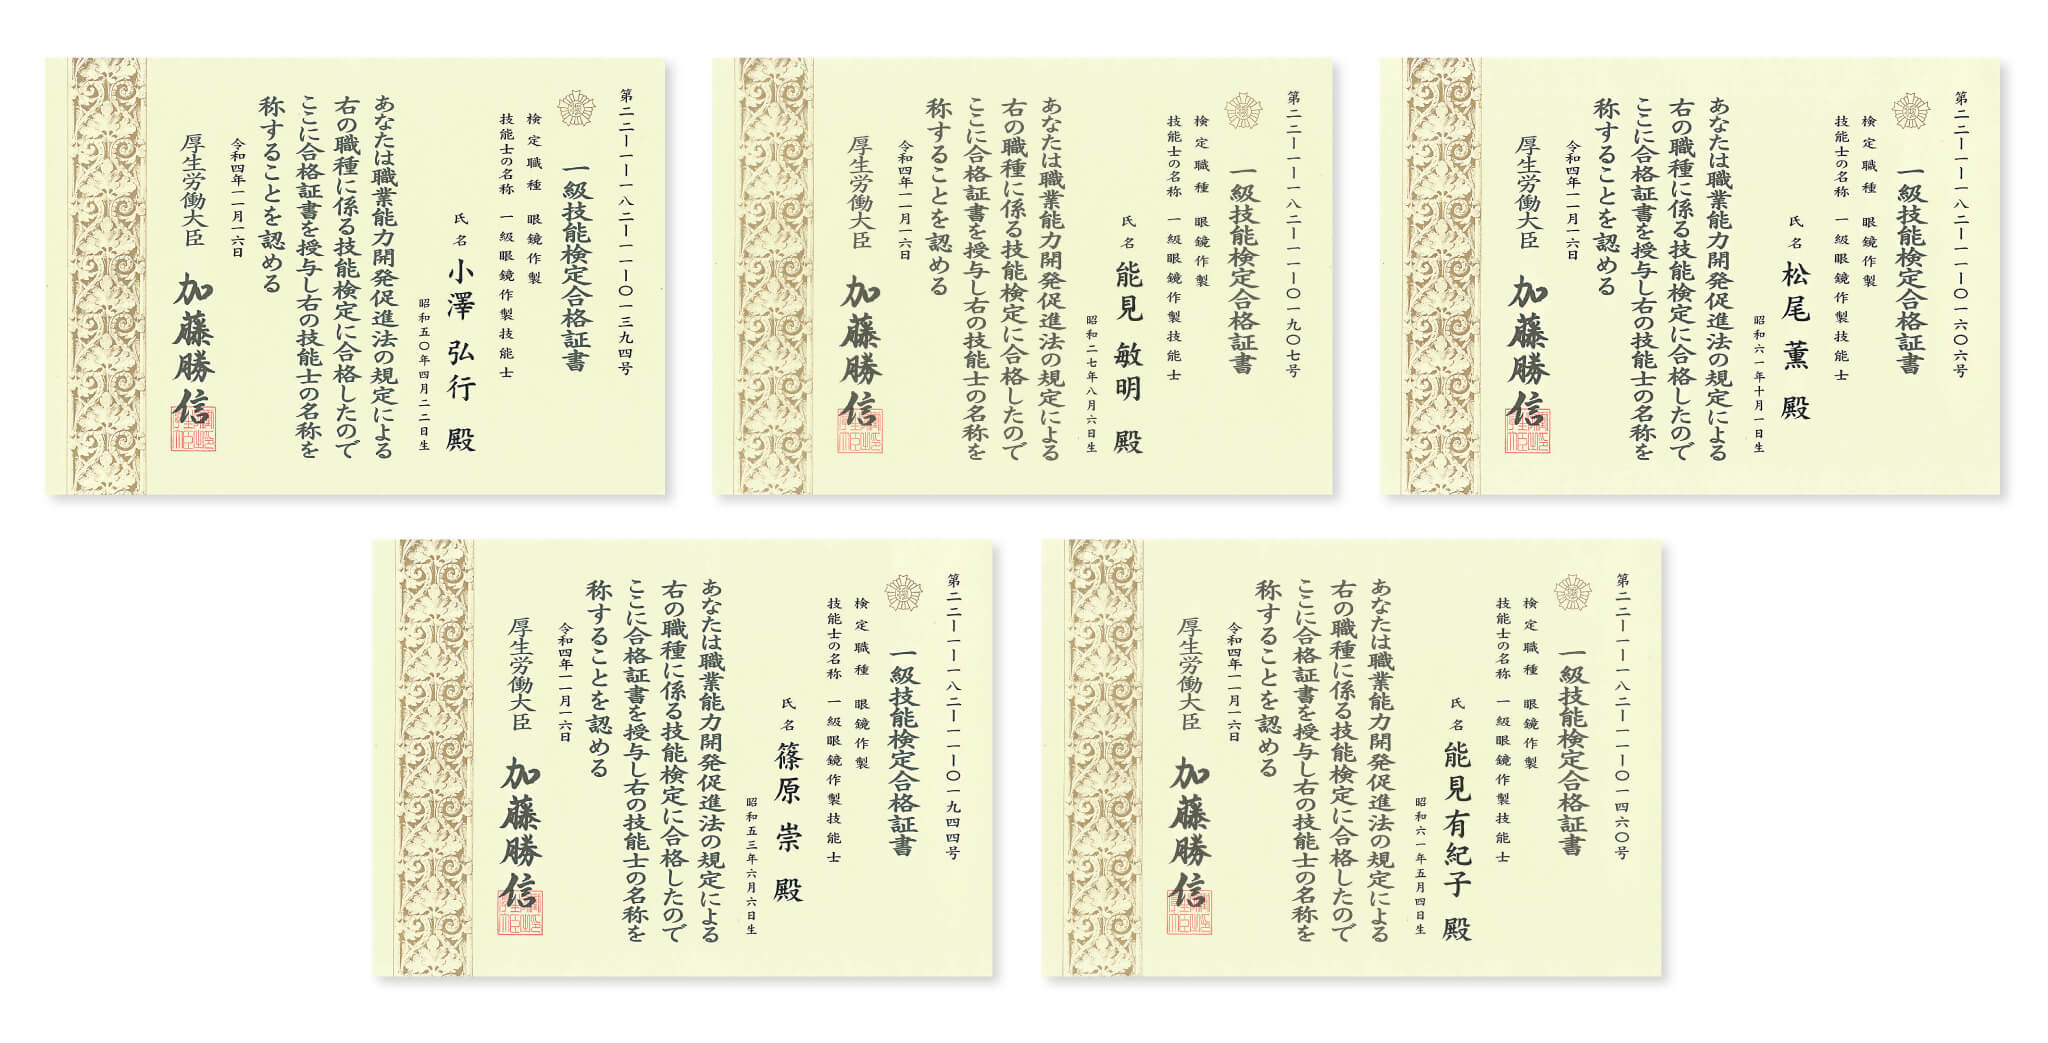 第二二―一―一八二―一一―〇一三九四号
一級技能検定合格証書
検定職種 眼鏡作製
技能士の名称 一級眼鏡作製技能士
氏名 小澤 弘行 殿
昭和五〇年四月二二日生
あなたは職業能力開発促進法の規定による
右の職種に係る技能検定に合格したので
ここに合格証書を授与し右の技能士の名称を
称することを認める
令和四年一一月一六日
厚生労働大臣 加藤勝信
第二二―一―一八二―一一―〇一九〇七号
一級技能検定合格証書
検定職種 眼鏡作製
技能士の名称 一級眼鏡作製技能士
氏名 能見 敏明 殿
昭和二七年八月六日生
あなたは職業能力開発促進法の規定による
右の職種に係る技能検定に合格したので
ここに合格証書を授与し右の技能士の名称を
称することを認める
令和四年一一月一六日
厚生労働大臣 加藤勝信
第二二―一―一八二―一一―〇一六〇六号
一級技能検定合格証書
検定職種 眼鏡作製
技能士の名称 一級眼鏡作製技能士
氏名 松尾 薫 殿
昭和六一年十月一日生
あなたは職業能力開発促進法の規定による
右の職種に係る技能検定に合格したので
ここに合格証書を授与し右の技能士の名称を
称することを認める
令和四年一一月一六日
厚生労働大臣 加藤勝信
第二二―一―一八二―一一―〇一九四四号
一級技能検定合格証書
検定職種 眼鏡作製
技能士の名称 一級眼鏡作製技能士
氏名 篠原 崇 殿
昭和五三年六月六日生
あなたは職業能力開発促進法の規定による
右の職種に係る技能検定に合格したので
ここに合格証書を授与し右の技能士の名称を
称することを認める
令和四年一一月一六日
厚生労働大臣 加藤勝信
第二二―一―一八二―一一―〇一四六〇号
一級技能検定合格証書
検定職種 眼鏡作製
技能士の名称 一級眼鏡作製技能士
氏名 能見有紀子 殿
昭和六一年五月四日生
あなたは職業能力開発促進法の規定による
右の職種に係る技能検定に合格したので
ここに合格証書を授与し右の技能士の名称を
称することを認める
令和四年一一月一六日
厚生労働大臣 加藤勝信